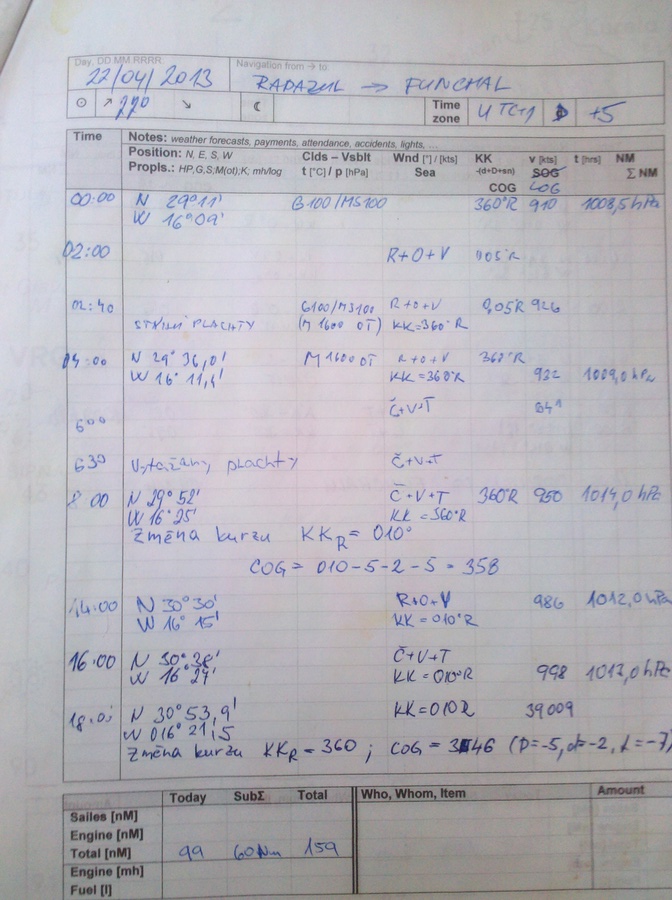 Day, DD.MM.RRRR. Navigation from → to
22/04/2013 RADAZUL → FUNCHAL
Time zone UTC+1 +5
Time Notes: weather forecasts, payments, attendance, accidents, lights, ...
Position: N, E, S, W Clds – Vsblt Wnd [°] / [kts] KK v [kts] t [hrs] NM
Propls.: HP,G,S;M(ot);K, mh/log t [°C] / p [hPa] Sea -(d+D+sn) SOG Σ NM
COG LOG
00:00 N 29°11' G100/MS100 360°R 910 1008,5hPa
W 16°09'
02:00 R+O+V 005°R
02:40 G100/MS100 R+O+V 005R 926
PLACHTY (M 1600 OT) KK=360°R
04:00 N 29° 36,0' M1600 OT R+O+V 360°R
W 16° 11,4' KK=360°R 932 1009,0hPa
Č+V+T
6⁰⁰
6³⁰ Vytaženy plachty Č+V+T
8 00 N 29° 52' Č+V+T 360°R 950 1014,0hPa
W 16° 25' KK=360°R
Změna kurzu KK_R = 010°
COG = 010-5-2-5 = 358
14:00 N 30° 30' R+O+V 986 1012,0hPa
W 16° 15' KK=010°R
16:00 N 30° 38' Č+V+T
W 16° 27' KK=010°R 998 1013,0hPa
18:0 N 30° 53,9' KK=010R 39009
W 016° 21,5
Změna kurzu KK_R = 360 ; COG = 346 (D=-5, d=-2, =-7)
Today SubΣ Total Who, Whom, Item Amount
Sailes [nM]
Engine [nM]
Total [nM] 99 60Nm 159
Engine [mh]
Fuel [l]